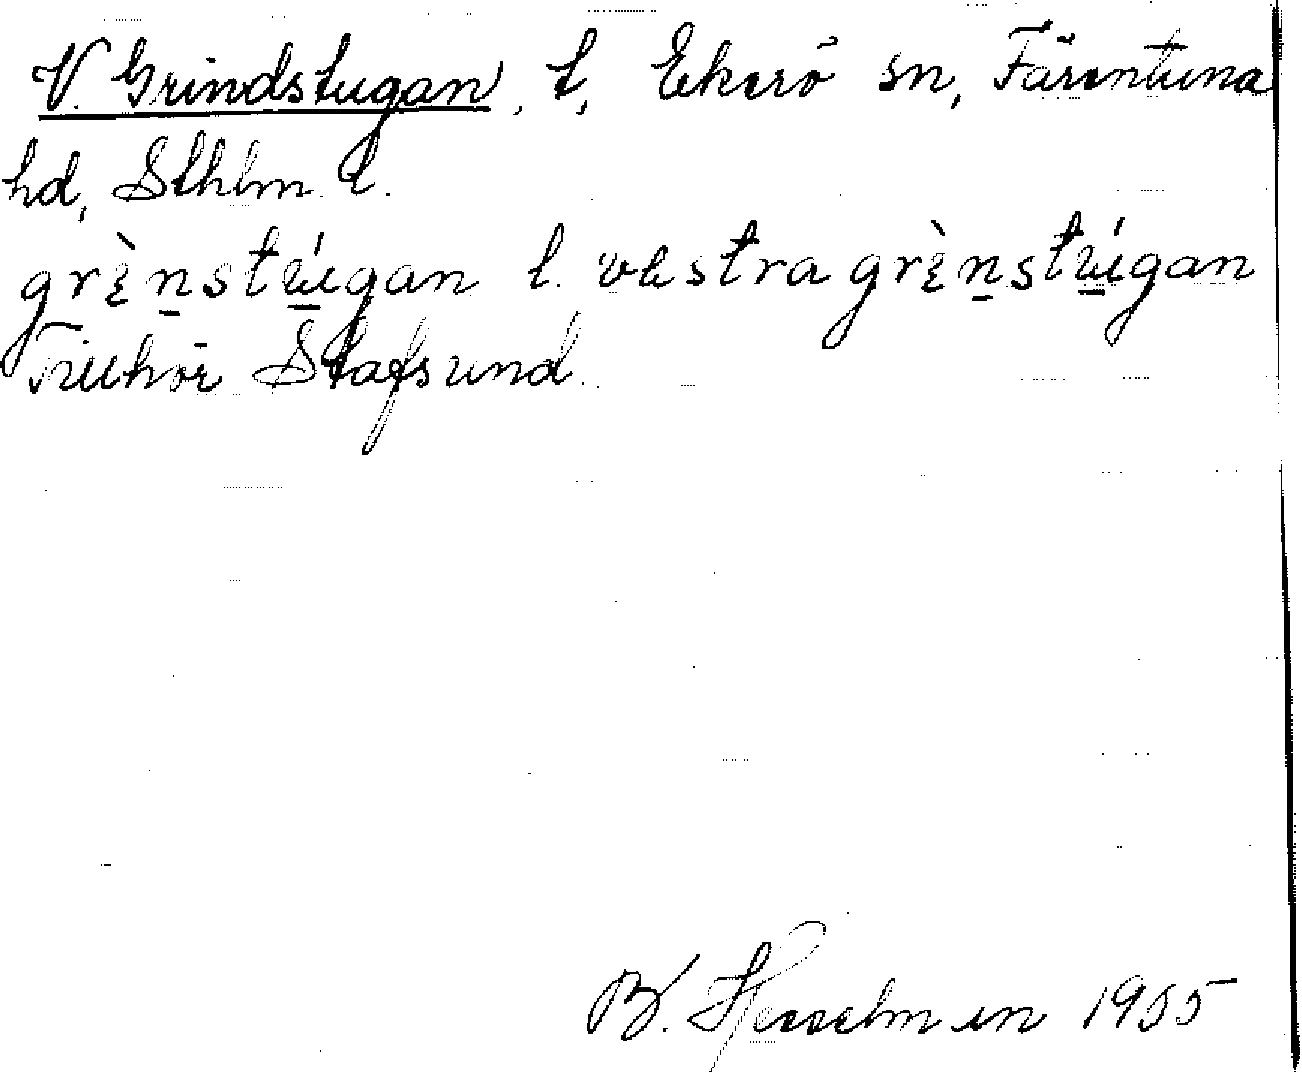 V. Grindstugan, t, Ekerö sn, Färentuna
hd, Sthlm. l.
grὲn̠stú̠gan l. västra grὲn̠stú̠gan
Tillhör Stafsund.
B. Hesselman 1905